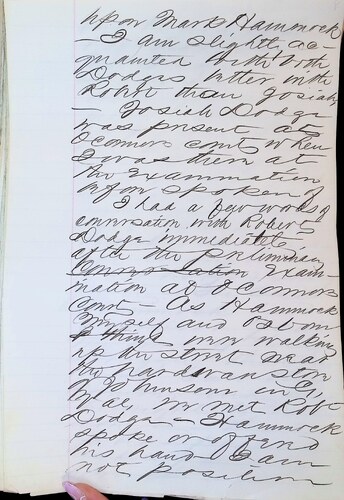 upon Mark Hammock
- I am slightly ac-
quainted with both
Dodges better with
Robt than Josiah
- Josiah Dodge
was present at
O'Connors court when
I was there at
the Examination
before spoken of
I had a few words of
conversation with Robert
Dodge immediately
after the preliminary
Conversation Exam-
ination at O'Connors
court - As Hammock
myself and
things were walking
up the street near
the hardware store
Johnson in
we met Robt
Dodge - Hammock
spoke or offered
his hand I am
not position